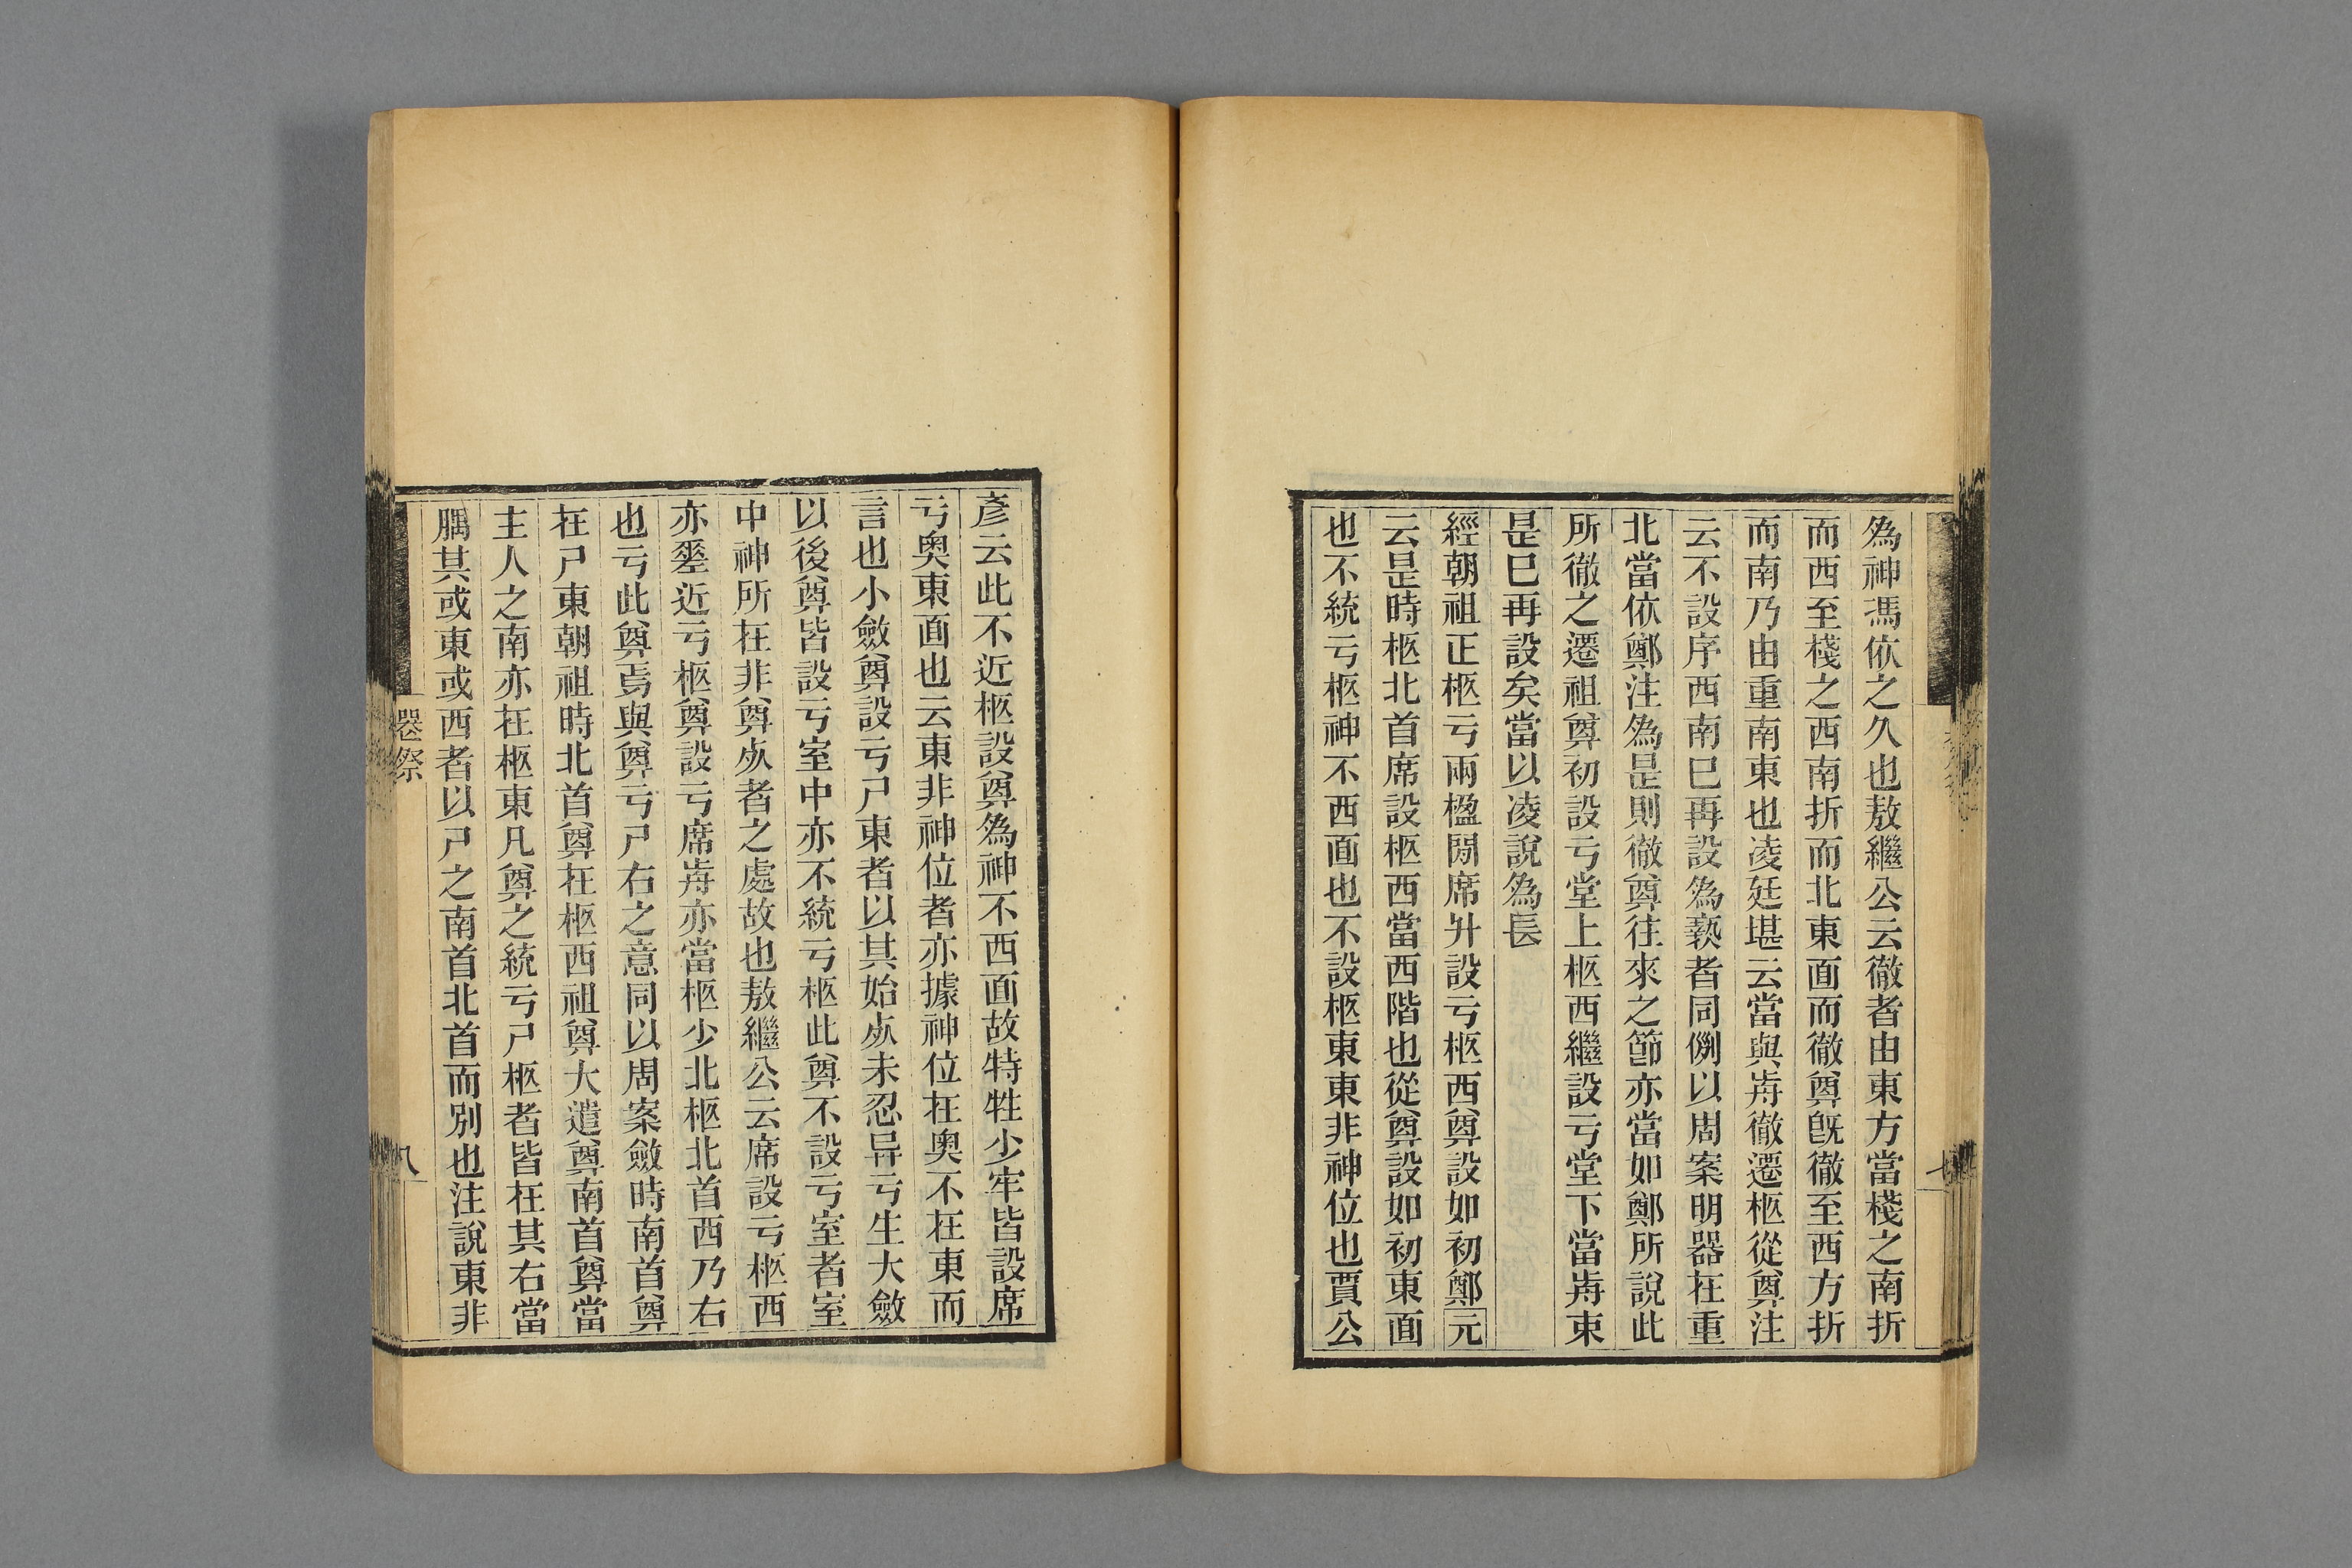 為神馮依之久也敖繼公云徹者由東方當棧之南折
而西至棧之西南折而北東面而徹奠既徹至西方折
而南乃由重南東也凌廷堪云當與歬徹遷柩從奠注
云不設序西南巳再設為褻者同例以周案明器在重
北當依鄭注為是則徹奠往來之節亦當如鄭所說此
所徹之遷祖奠初設亏堂上柩西繼設亏堂下當歬束
是巳再設矣當以凌說為長
經朝祖正柩亏兩楹閒席升設亏柩西奠設如初鄭元
云是時柩北首席設柩西當西階也從奠設如初東面
也不統亏柩神不西面也不設柩東東非神位也賈公
彥云此不近柩設奠為神不西面故特牲少牢皆設席
亏奧東面也云東非神位者亦據神位在奧不在東而
言也小斂奠設亏尸東者以其始𣦸未忍異亏生大斂
以後奠皆設亏室中亦不統亏柩此奠不設亏室者室
中神所在非奠𣦸者之處故也敖繼公云席設亏柩西
亦差近亏柩奠設亏席歬亦當柩少北柩北首西乃右
也亏此奠焉與奠亏尸右之意同以周案斂時南首奠
在尸東朝祖時北首奠在柩西祖奠大遣奠南首奠當
主人之南亦在柩東凡奠之統亏尸柩者皆在其右當
腢其或東或西者以尸之南首北首而別也注說東非
喪祭
八